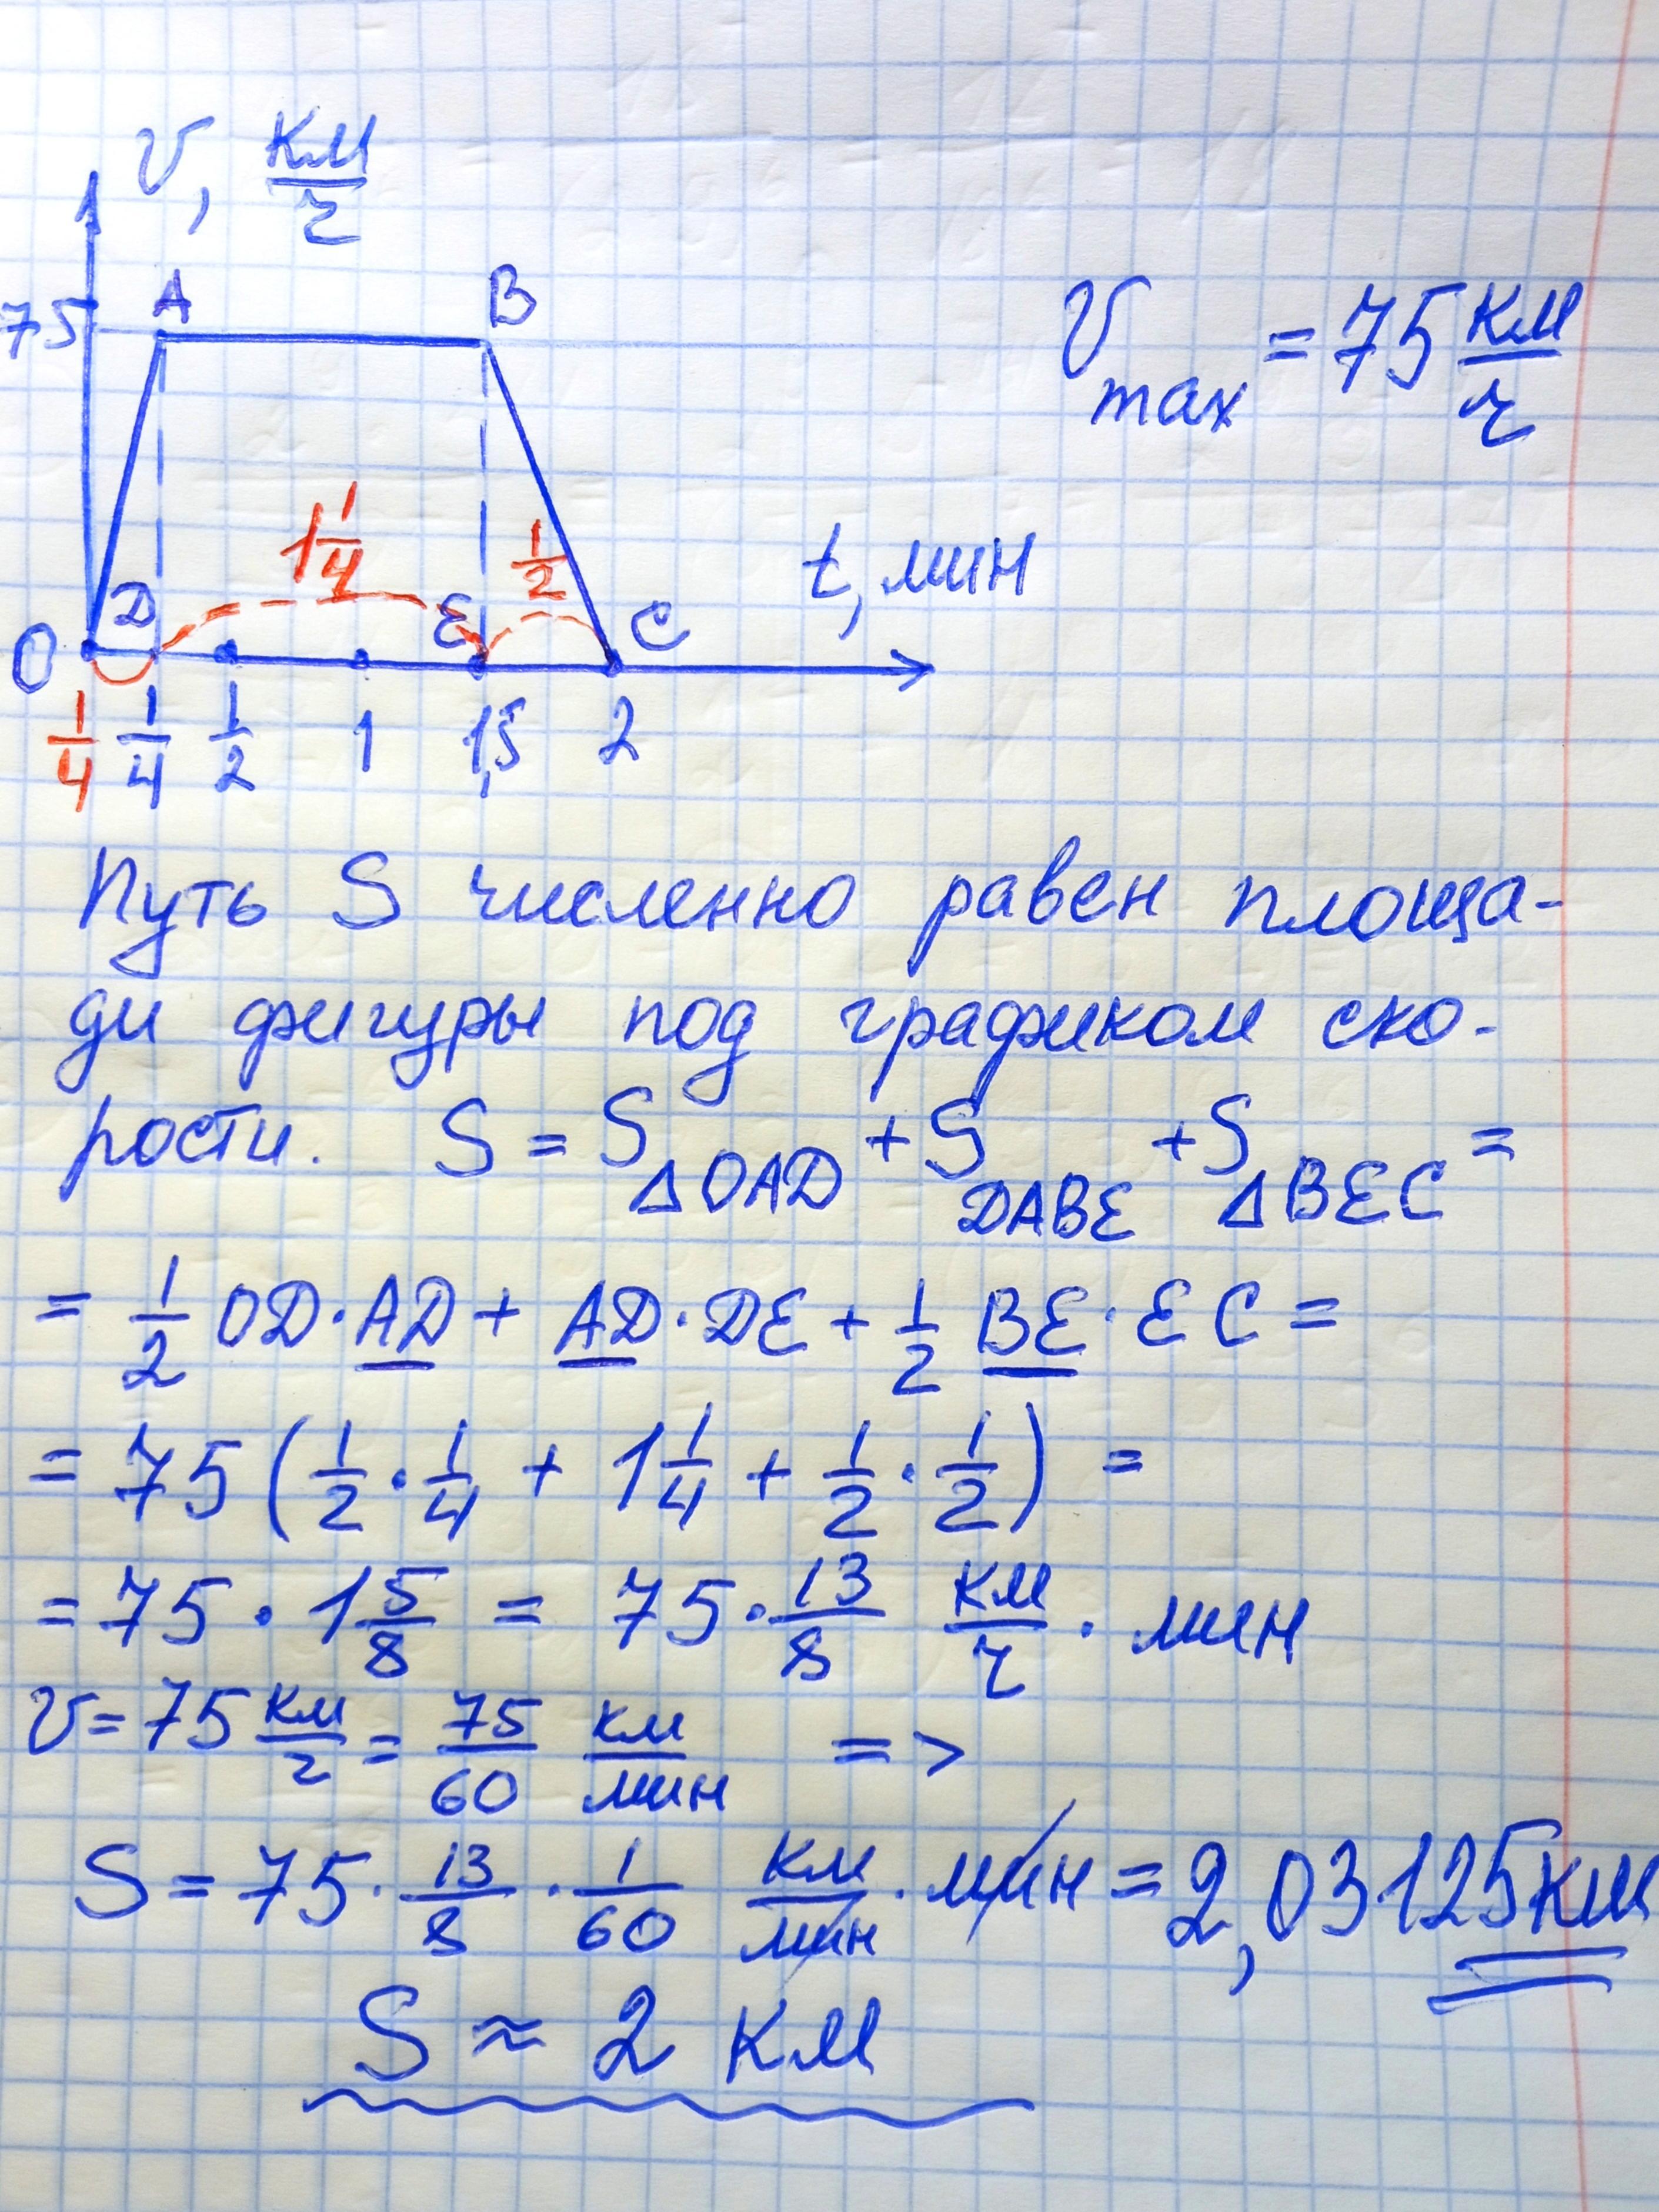 v, км/ч
75 A B
v max = 75 км/ч
1 1/4 1/2
t, мин
O D E C
1/4 1/4 1/2 1 1,5 2
Путь S численно равен площа-
ди фигуры под графиком ско-
рости. S = S ΔOAD + S DABE + S ΔBEC =
= 1/2 OD · AD + AD · DE + 1/2 BE · EC =
= 75 (1/2 · 1/4 + 1 1/4 + 1/2 · 1/2) =
= 75 · 1 5/8 = 75 · 13/8 км/ч · мин
v = 75 км/ч = 75/60 км/мин =>
S = 75 · 13/8 · 1/60 км/мин · мин = 2,03125 км
S ≈ 2 км